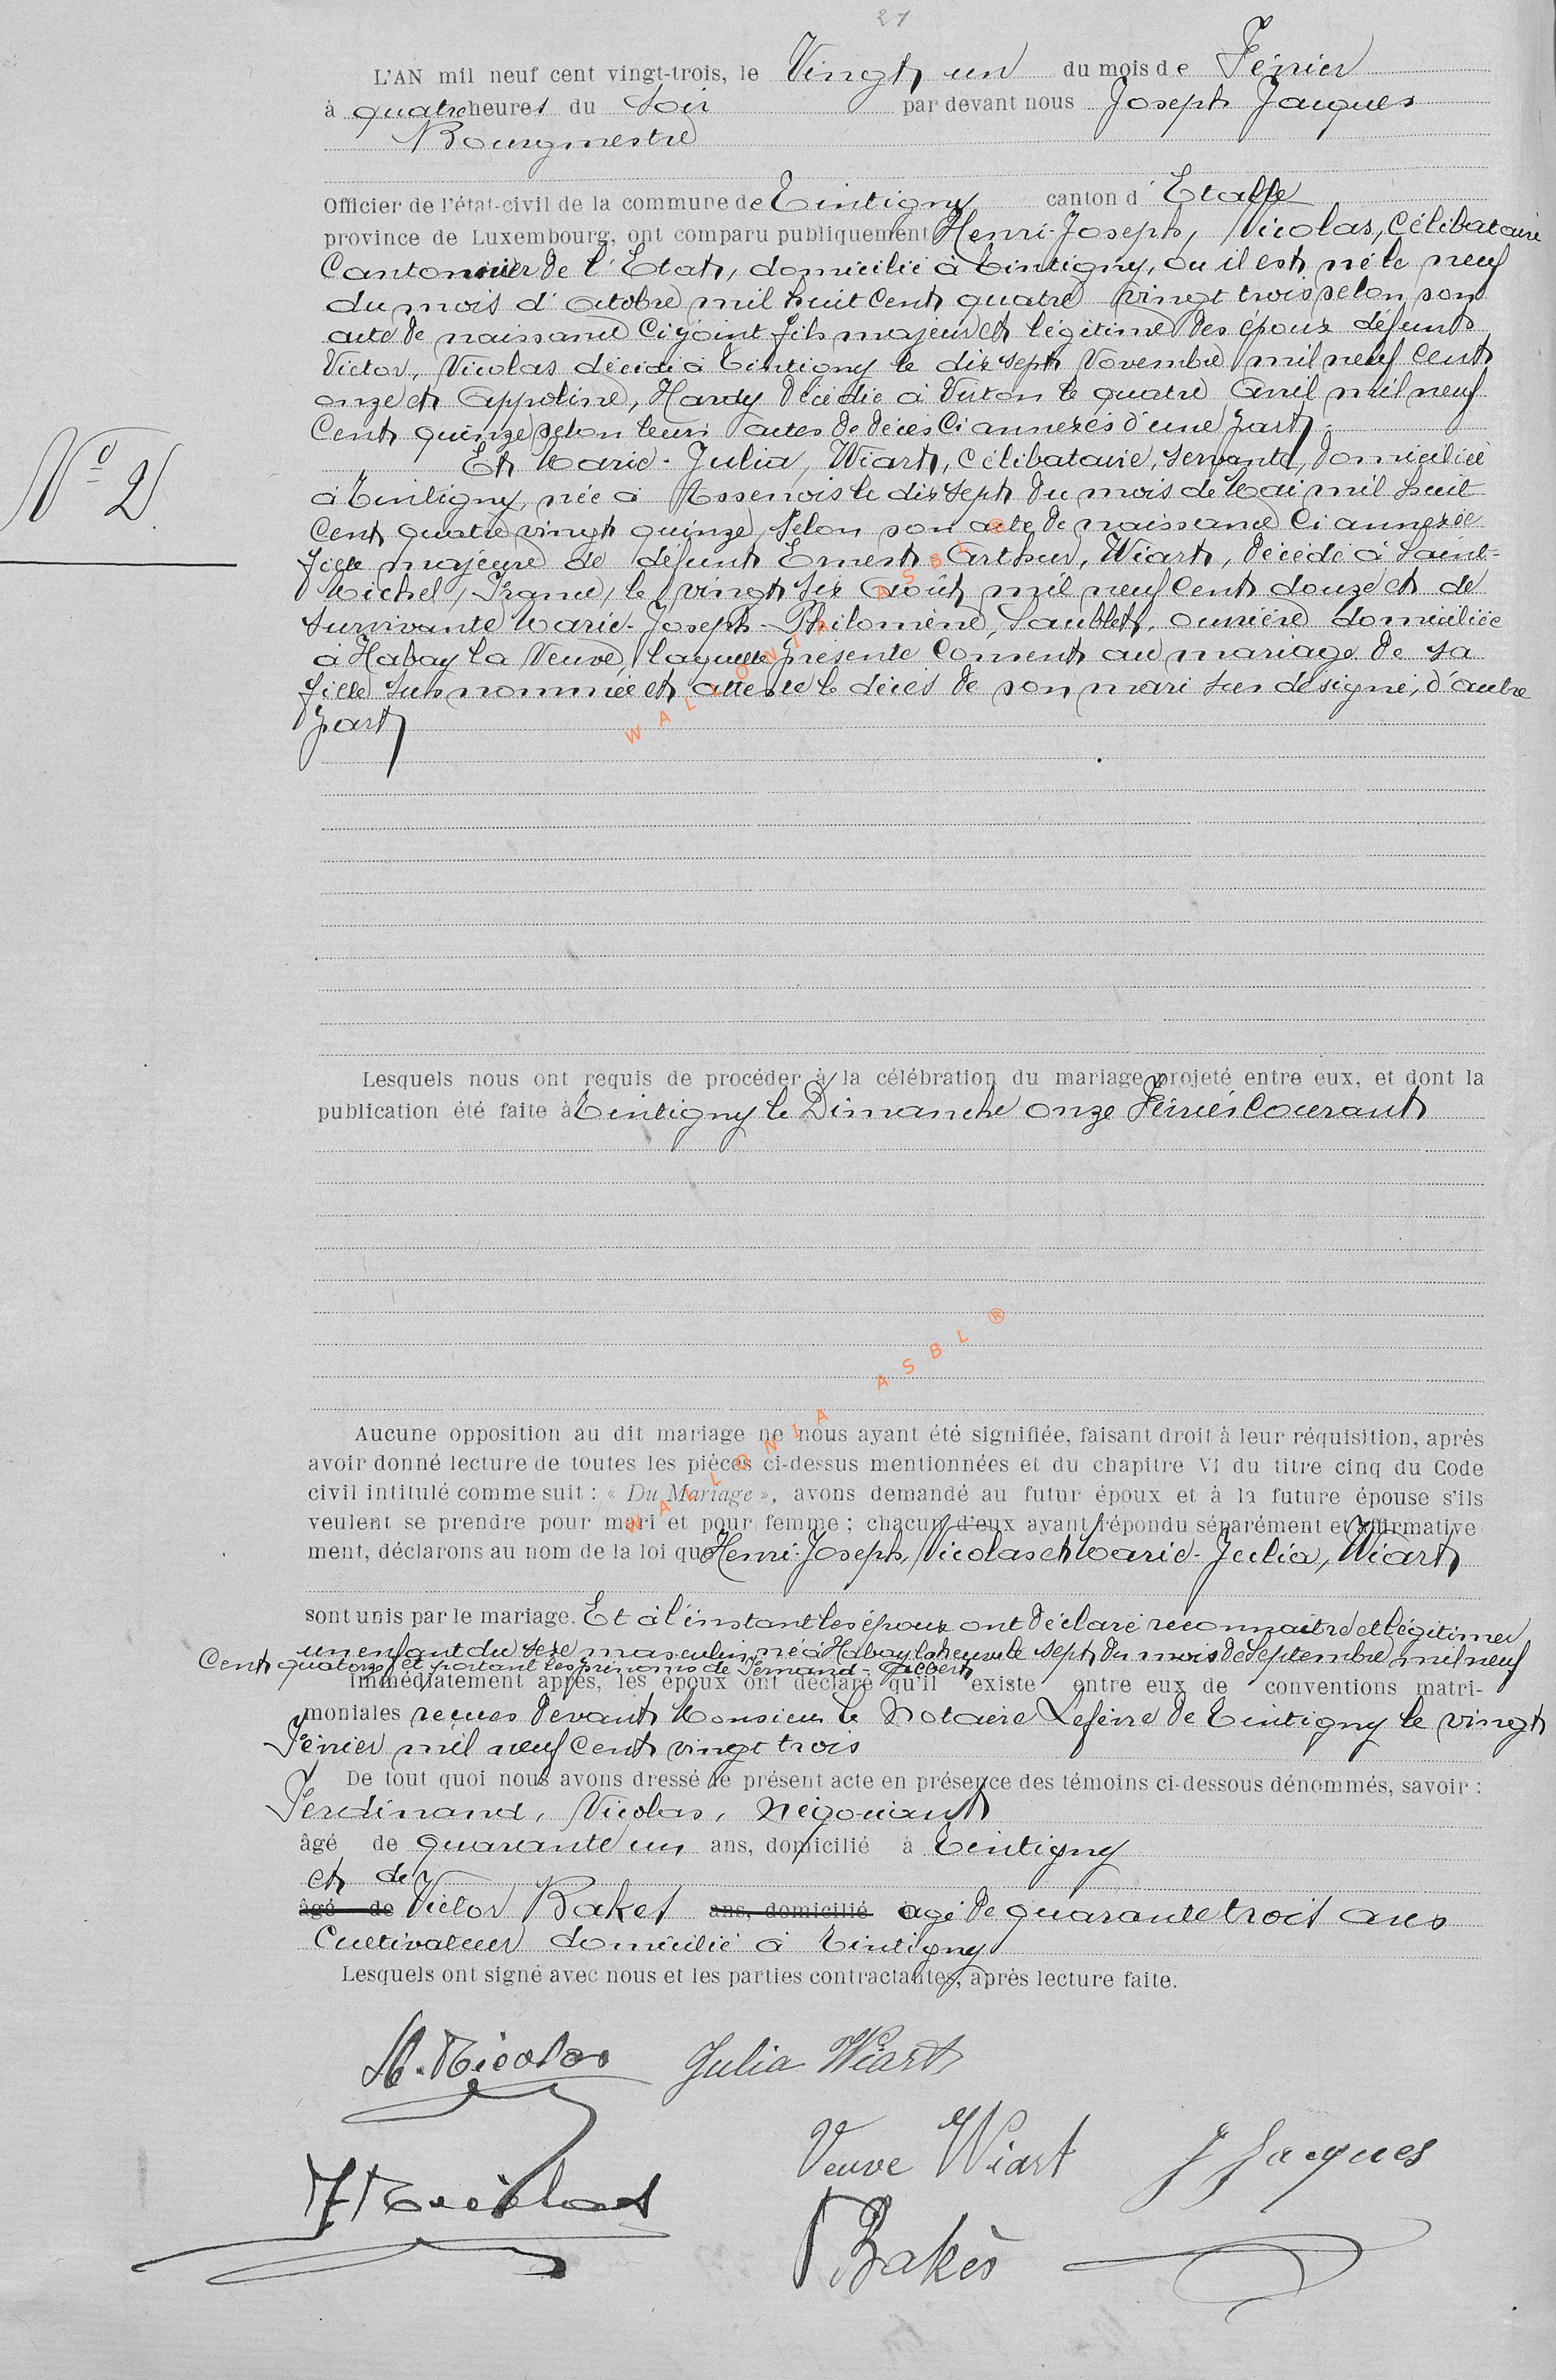 21
L'AN mil neuf cent vingt-trois, le Vingt un du mois de Février
à quatre heures du Soir par devant nous Joseph Jacques
Bourgmestre
Officier de l'état-civil de la commune de Tintigny canton d'Etalle
province de Luxembourg, ont comparu publiquement Henri-Joseph, Nicolas, Célibataire
Cantonnier de l'Etat, domicilié à Tintigny, ou il est né le neuf
du mois d'Octobre mil huit cent quatre vingt trois selon son
acte de naissance Ci joint fils majeur et légitime des époux défunts
Victor, Nicolas décédé à Tintigny le dix sept Novembre mil neuf cent
onze et Appoline, Hardy décédée à Virton le quatre Avril mil neuf
Cent quinze selon leurs actes de décès Ci annexés d'une part.
Et Marie-Julia, Wiart, Célibataire, servante, domiciliée
à Tintigny née à Assenois le dix sept du mois de Mai mil huit
Cent quatre vingt quinze, Selon son acte de naissance Ci annexée
fille majeure de défunt Ernest Arthur, Wiart, décédé à Saint-
Michel, France, le vingt six Août mil neuf cent douze et de
Survivante Marie-Joseph-Philomène, Saublet, ouvrière domiciliée
à Habay la Neuve, laquelle présente Consent au mariage de sa
fille sus nommée et atteste le décès de son mari sus désigné, d'autre
part
N° 2
Lesquels nous ont requis de procéder à la célébration du mariage projeté entre eux, et dont la
publication été faite à Tintigny le Dimanche onze Février Courant
Aucune opposition au dit mariage ne nous ayant été signifiée, faisant droit à leur réquisition, après
avoir donné lecture de toutes les pièces ci-dessus mentionnées et du chapitre VI du titre cinq du Code
civil intitulé comme suit : « Du Mariage », avons demandé au futur époux et à la future épouse s'ils
veulent se prendre pour mari et pour femme ; chacun d'eux ayant répondu séparément et affirmative
ment, déclarons au nom de la loi que Henri-Joseph, Nicolas et Marie-Julia, Wiart
sont unis par le mariage. Et à l'instant les époux ont déclaré reconnaître et légitimer
un enfant du sexe masculin, né à Habay la neuve le sept du mois de Septembre mil neuf
Cent quatorze et portant les prénoms de Fernand-Albert
Immédiatement après, les époux ont déclaré qu'il existe entre eux de conventions matri-
moniales reçues devant Monsieur le Notaire Lefèvre de Tintigny le vingt
Février mil neuf cent vingt trois
De tout quoi nous avons dressé le présent acte en présence des témoins ci-dessous dénommés, savoir :
Ferdinand, Nicolas, Négociant
âgé de quarante un ans, domicilié à Tintigny
et de
âgé de Victor Bakes ans, domicilié agé de quarante trois ans
Cultivateur domicilié à Tintigny
Lesquels ont signé avec nous et les parties contractantes, après lecture faite.
H. Nicolas Julia Wiart
Veuve Wiart J Jacques
F Nicolas
V Bakès
WALLONIA ASBL ®
WALLONIA ASBL ®